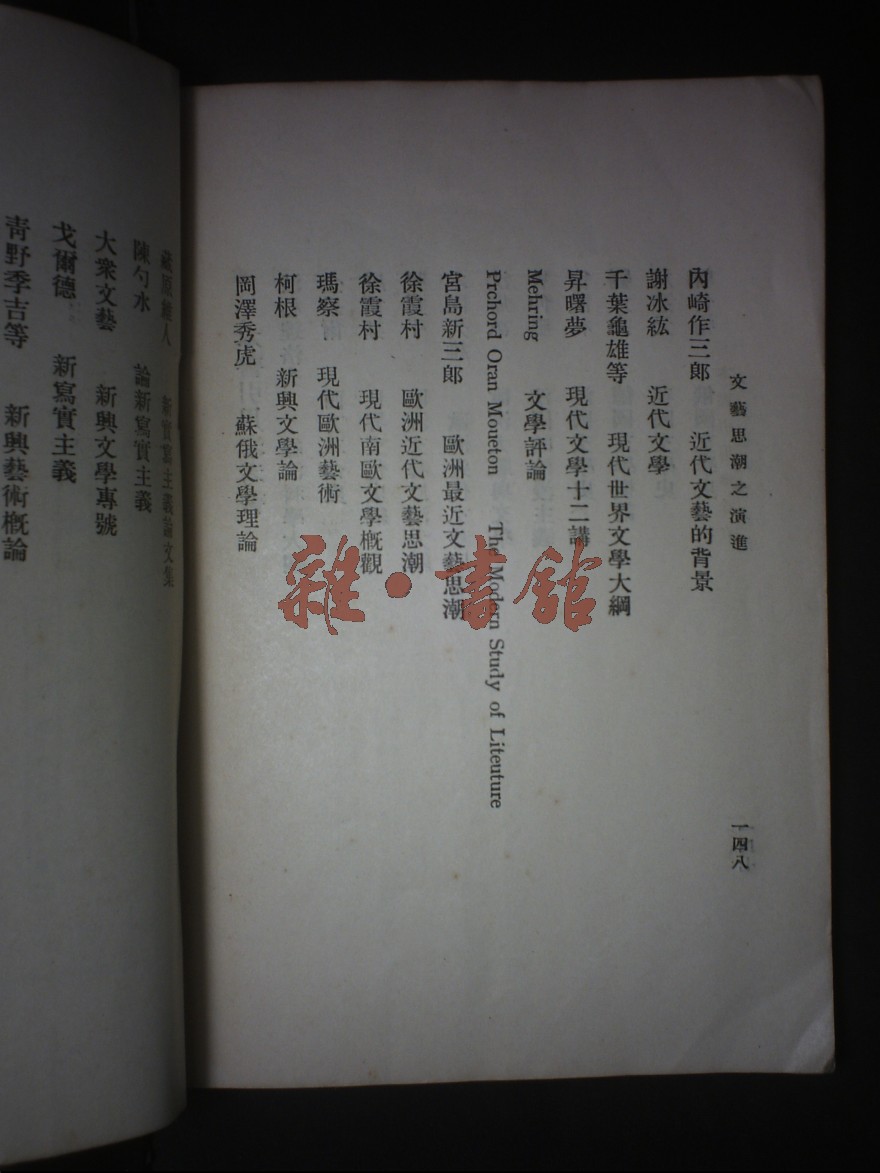 文藝思潮之演進
一四八
內崎作三郎　近代文藝的背景
謝冰紘　近代文學
千葉龜雄等　現代世界文學大綱
昇曙夢　現代文學十二講
Mehring　文學評論
Prchord Oran Moueton　The Modern Study of Liteuture
宮島新三郎　歐洲最近文藝思潮
徐霞村　歐洲近代文藝思潮
徐霞村　現代南歐文學概觀
瑪察　現代歐洲藝術
柯根　新興文學論
岡澤秀虎　蘇俄文學理論
藏原維人　新寫實主義論文集
陳勺水　論新寫實主義
大衆文藝　新興文學專號
戈爾德　新寫實主義
靑野季吉等　新興藝術概論
雜·書館